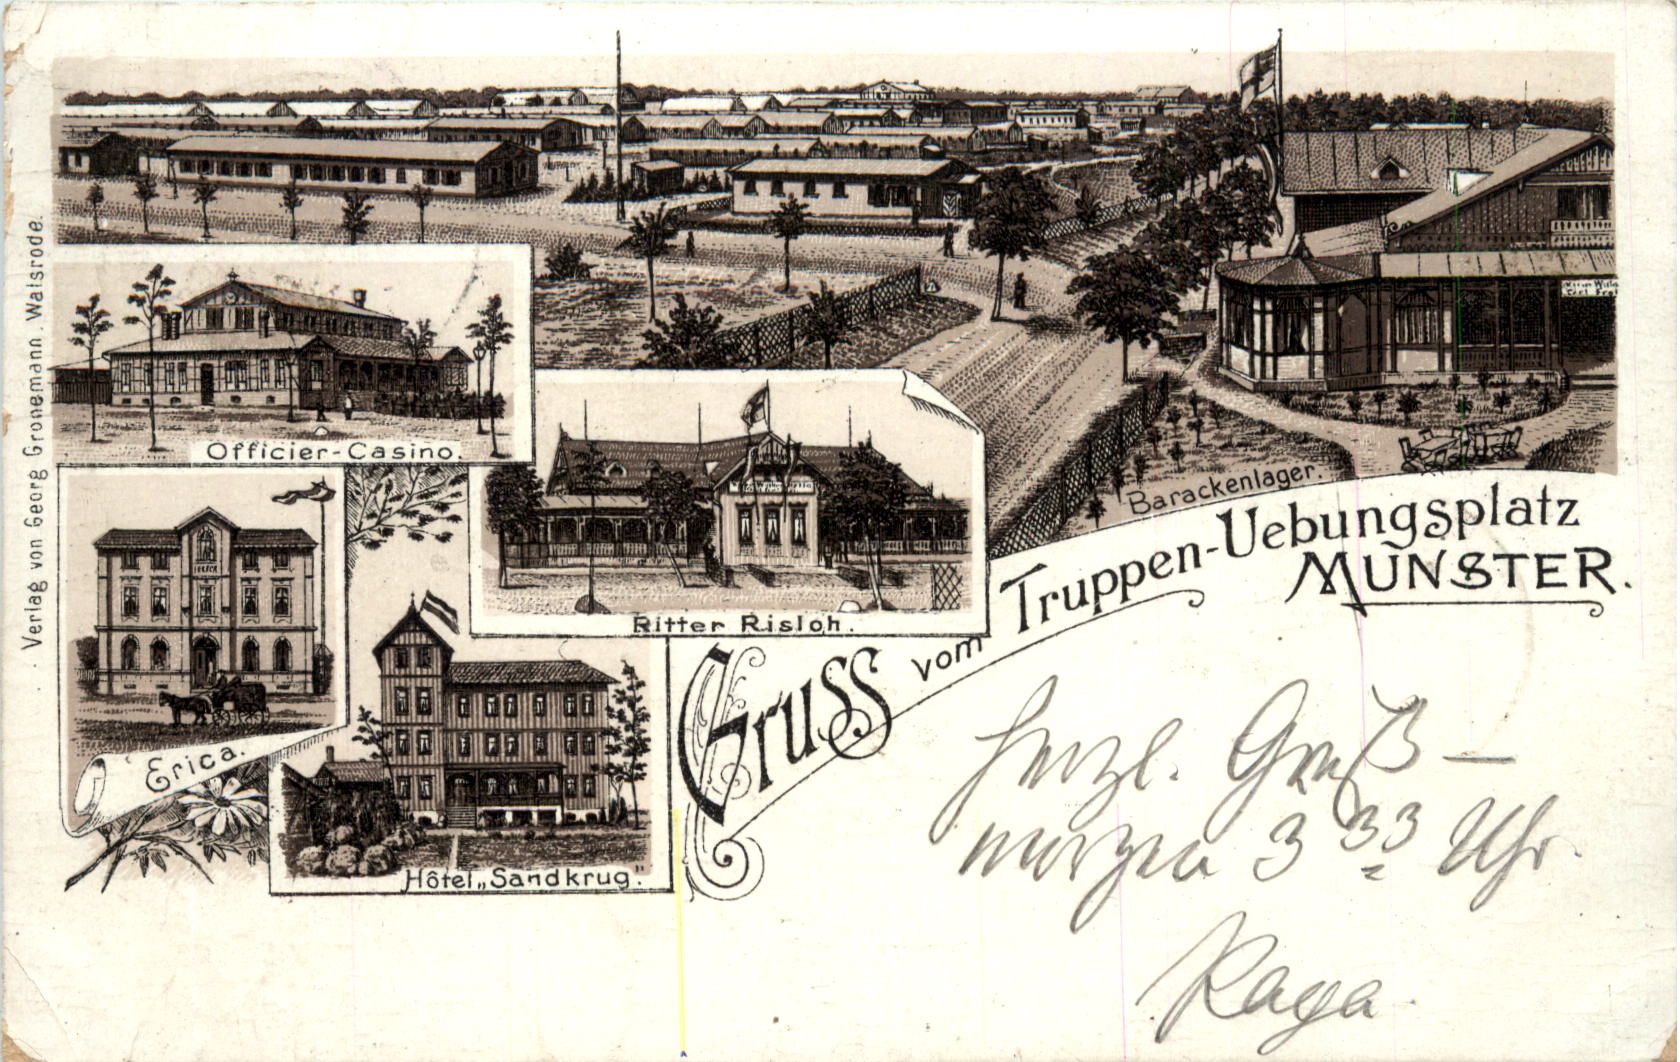 Verlag von Georg Gronemann. Walsrode.
Officier-Casino.
Barackenlager.
Ritter Risloh.
ERICA
Erica.
Hôtel „Sandkrug."
Gruss vom Truppen-Uebungsplatz
MUNSTER.
Herzl. Gruß –
morgen 3 33 Uhr